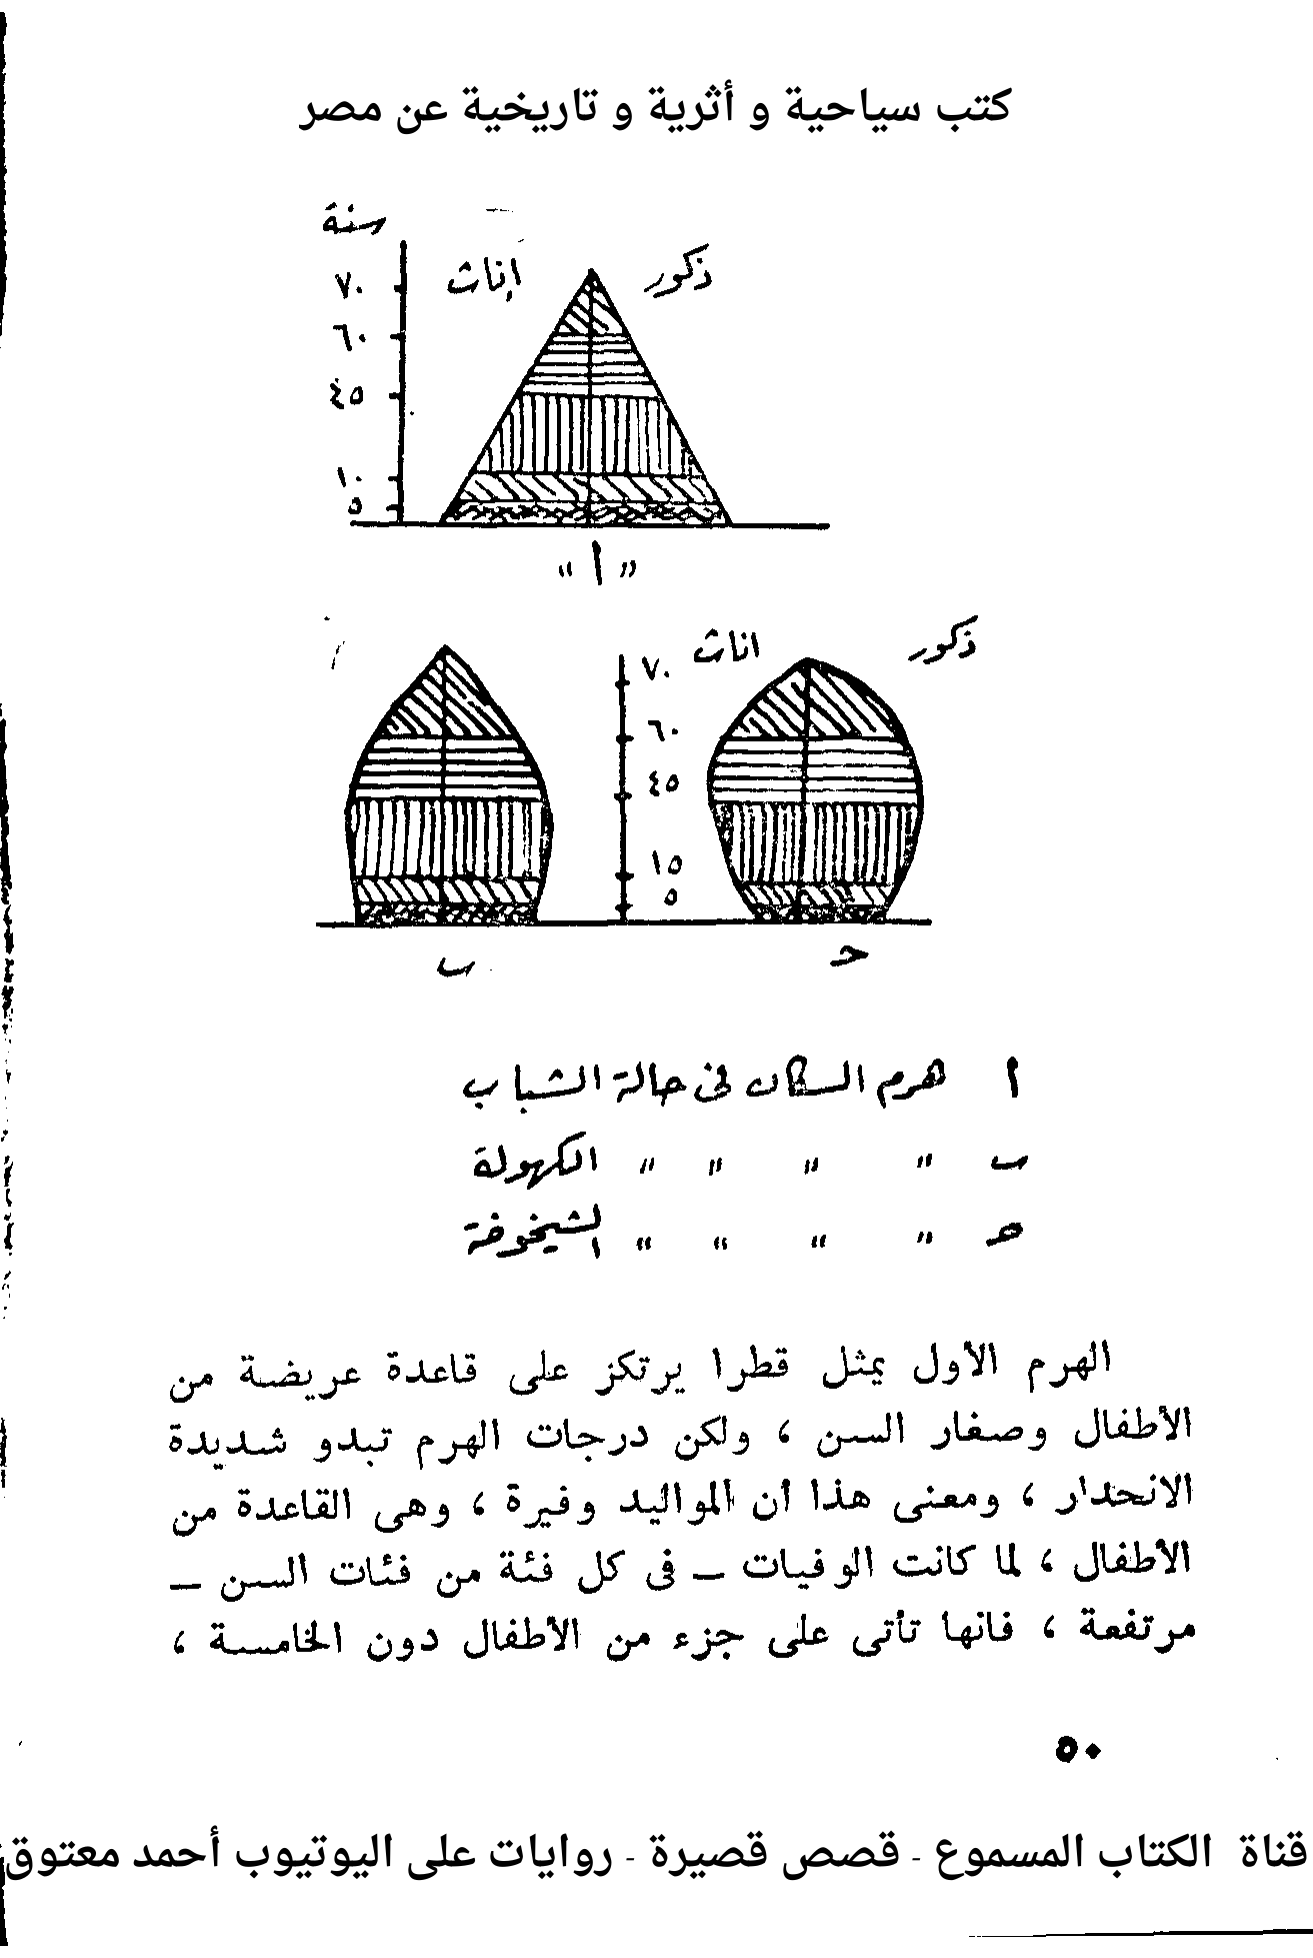 كتب سياحية و أثرية و تاريخية عن مصر
سنة
ذكور
إناث
٧٠
٦٠
٤٥
١٠
٥
"أ"
ذكور
اناث
٧٠
٦٠
٤٥
١٥
٥
ب
حـ
أ هرم السكان فى حالة الشباب
ب " " " " الكهولة
حـ " " " " الشيخوخة
الهرم الأول يمثل قطرا يرتكز على قاعدة عريضة من
الأطفال وصغار السن ، ولكن درجات الهرم تبدو شديدة
الانحدار ، ومعنى هذا أن المواليد وفيرة ، وهى القاعدة من
الأطفال ، لما كانت الوفيات ــ فى كل فئة من فئات السن ــ
مرتفعة ، فانها تأتى على جزء من الأطفال دون الخامسة ،
٥٠
قناة الكتاب المسموع - قصص قصيرة - روايات على اليوتيوب أحمد معتوق